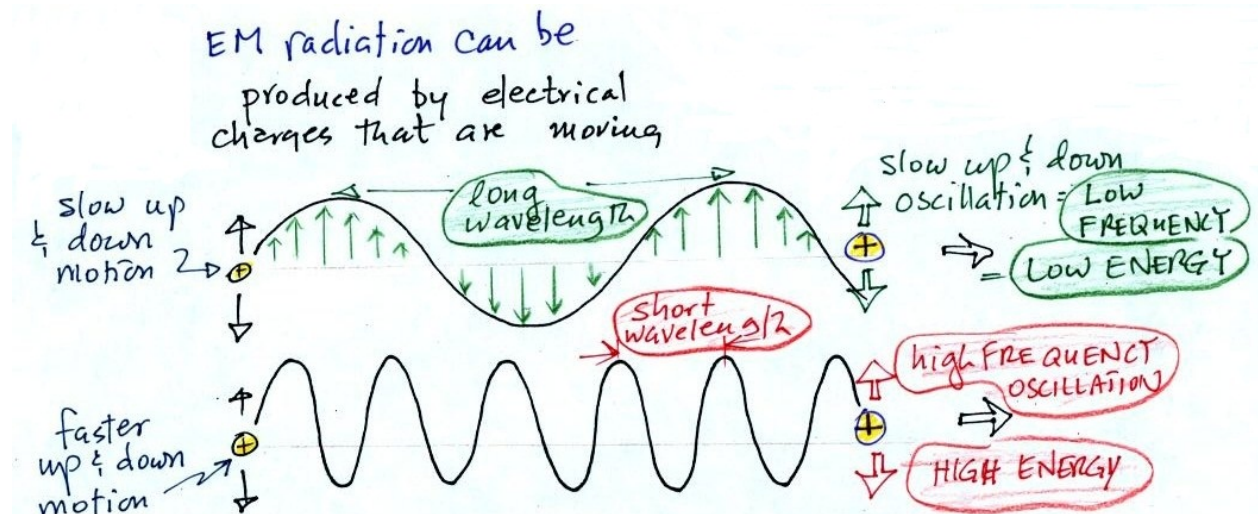 EM radiation can be
produced by electrical
charges that are moving
slow up
& down
motion
long
wavelength
slow up & down
oscillation =
LOW
FREQUENCY
= LOW ENERGY
+
+
short
wavelength
faster
up & down
motion
+
+
high FREQUENCY
OSCILLATION
HIGH ENERGY